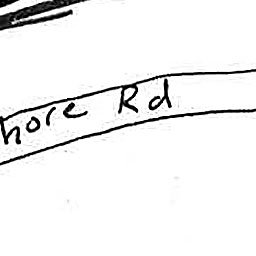 hore Rd